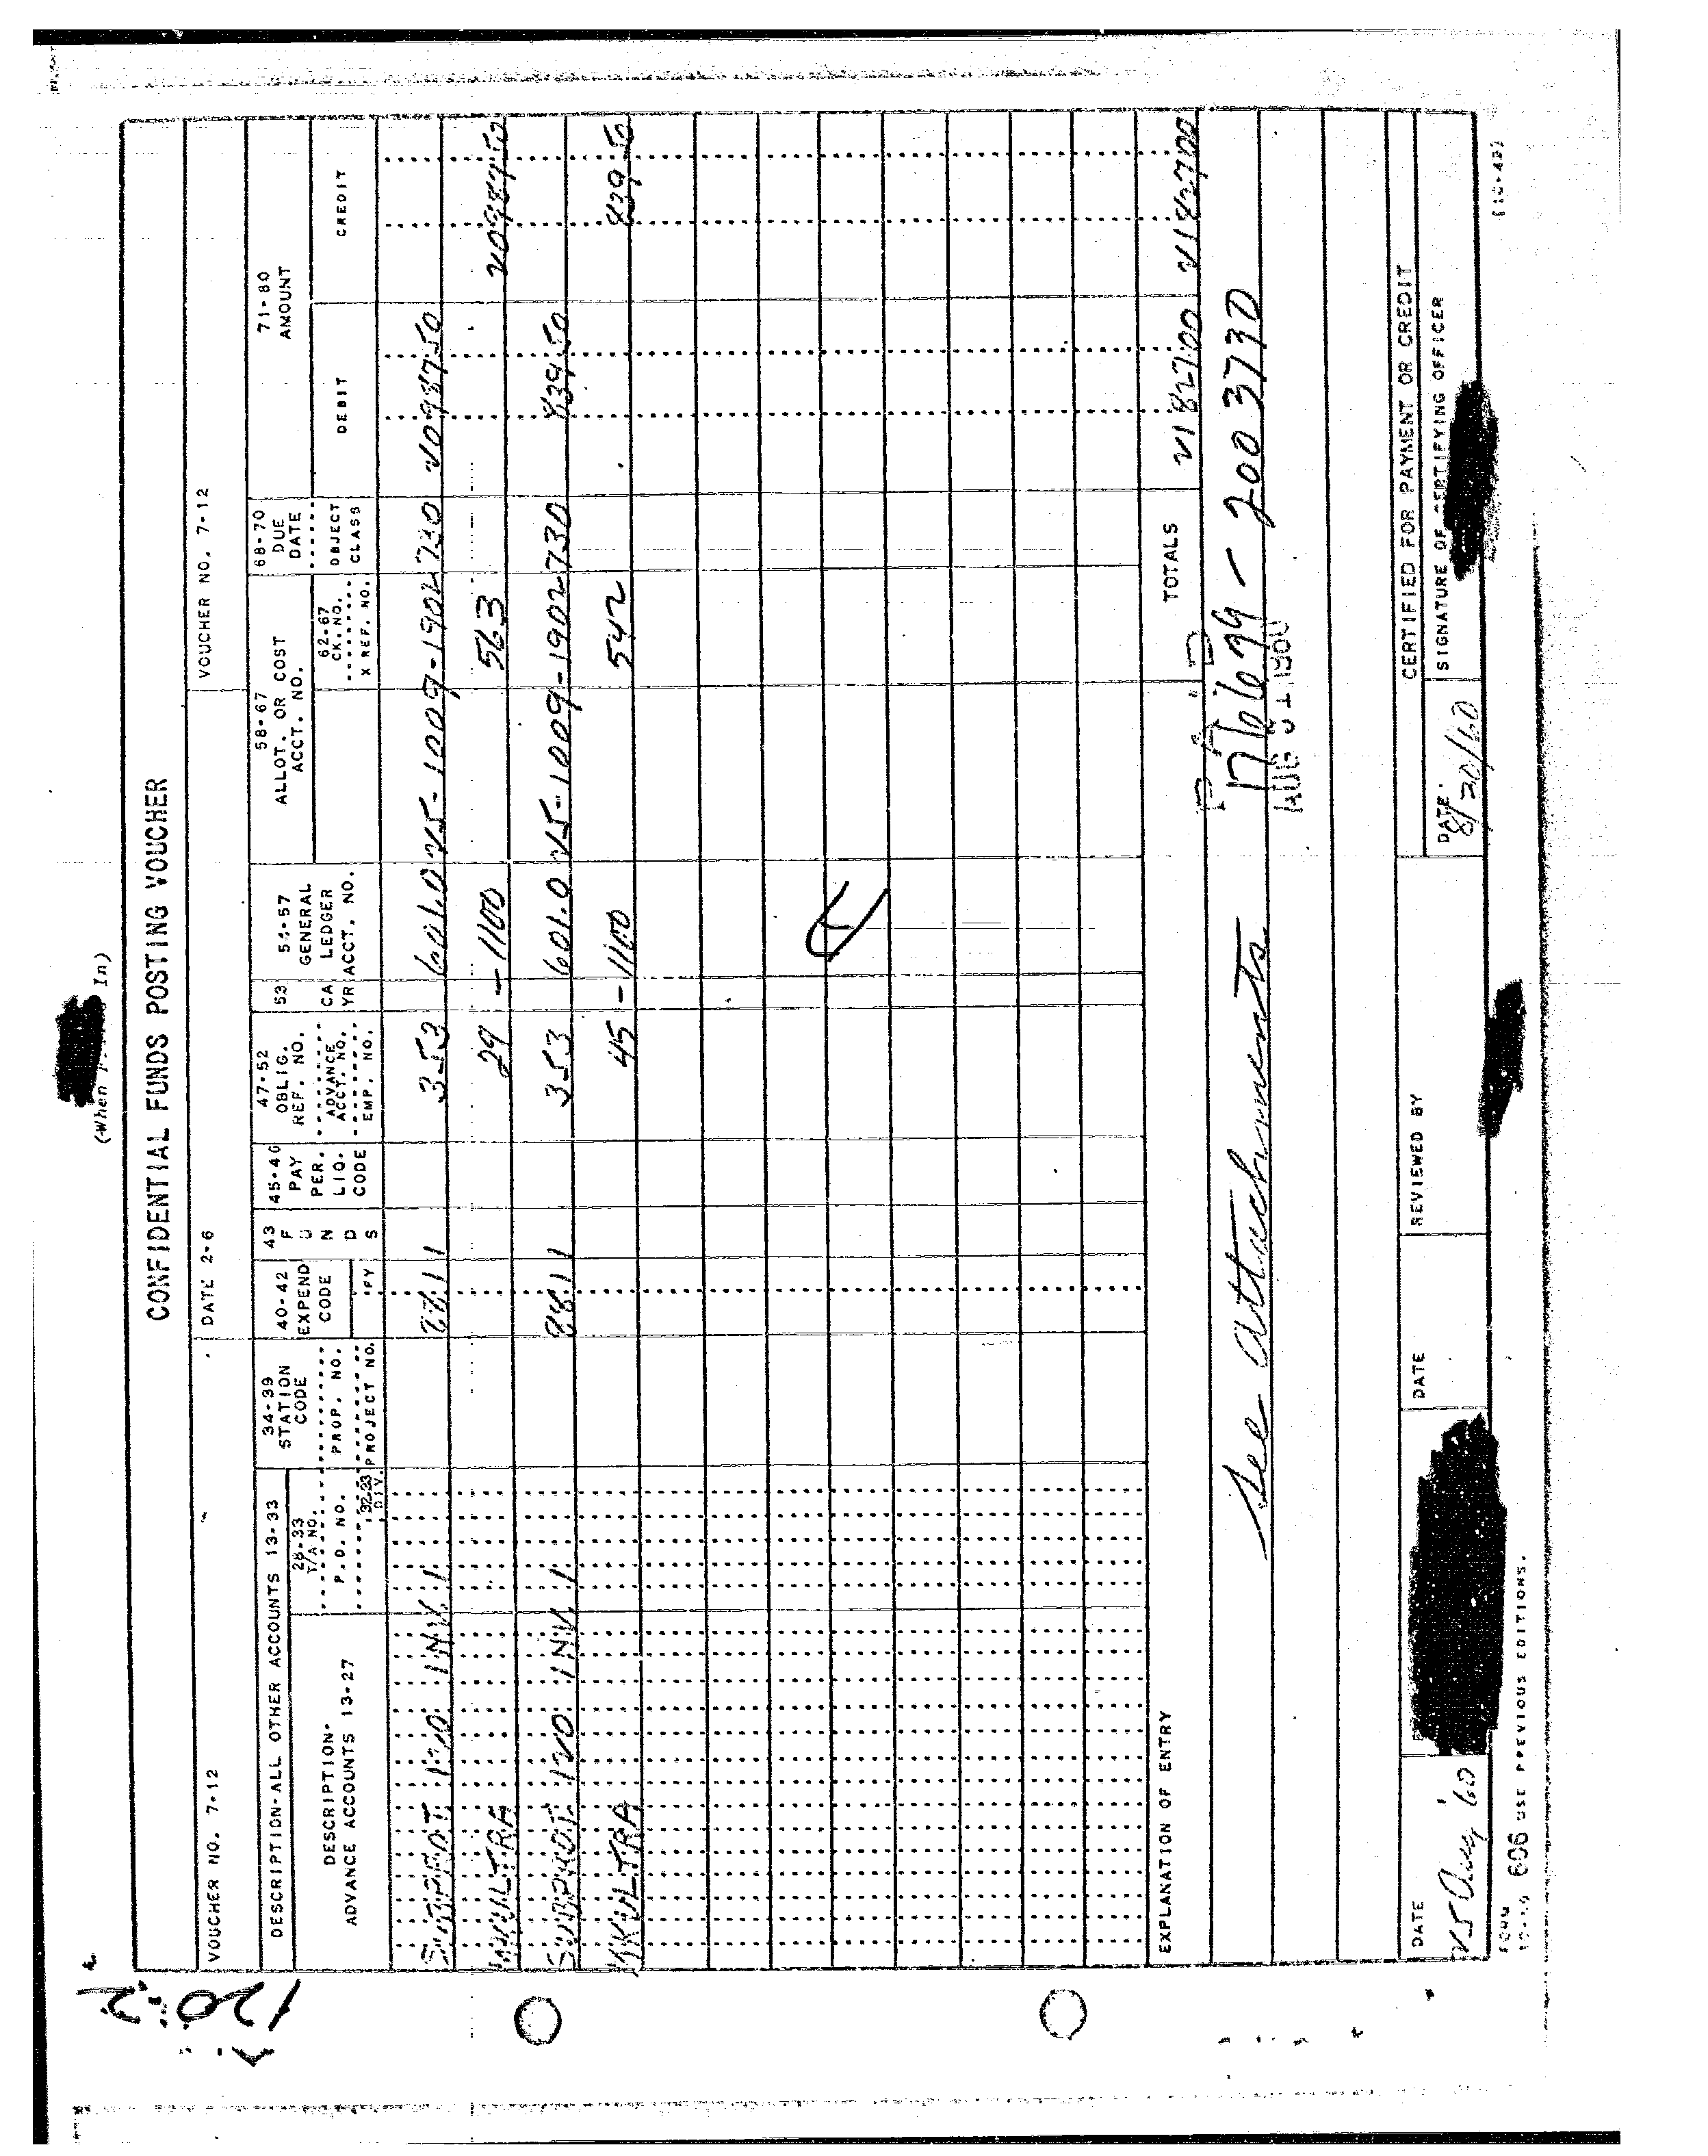 120-2
(When        In)
CONFIDENTIAL FUNDS POSTING VOUCHER
VOUCHER NO. 7-12 DATE 2-6 VOUCHER NO. 7-12
DESCRIPTION-ALL OTHER ACCOUNTS 13-33
DESCRIPTION-
ADVANCE ACCOUNTS 13-27
28-33
T/A NO.
P.O. NO.
32-33
DIV.
34-39
STATION
CODE
PROP. NO.
PROJECT NO.
40-42
EXPEND
CODE
FY
43
F
U
N
D
S
45-46
PAY
PER.
LIQ.
CODE
47-52
OBLIG.
REF. NO.
ADVANCE
ACCT. NO.
EMP. NO.
53
CA
YR
54-57
GENERAL
LEDGER
ACCT. NO.
58-67
ALLOT. OR COST
ACCT. NO.
62-67
CK. NO.
X REF. NO.
68-70
DUE
DATE
OBJECT
CLASS
71-80
AMOUNT
DEBIT
CREDIT
SUBPROT 120 INV. 1 22 1 1 353 601.0 25-1009-1902 730 20987.50
MKULTRA 29 - 1100 563 20987.50
SUBPROT 120 INV. 1 88 1 1 353 601.0 25-1009-1902 730 839.50
MKULTRA 45 - 1100 542 839.50
EXPLANATION OF ENTRY TOTALS 21827.00 21827.00
PAID
See attachments 200 3730
AUG 31 1960
CERTIFIED FOR PAYMENT OR CREDIT
DATE DATE REVIEWED BY DATE SIGNATURE OF CERTIFYING OFFICER
25 Aug '60 8/30/60
FORM 606 USE PREVIOUS EDITIONS.